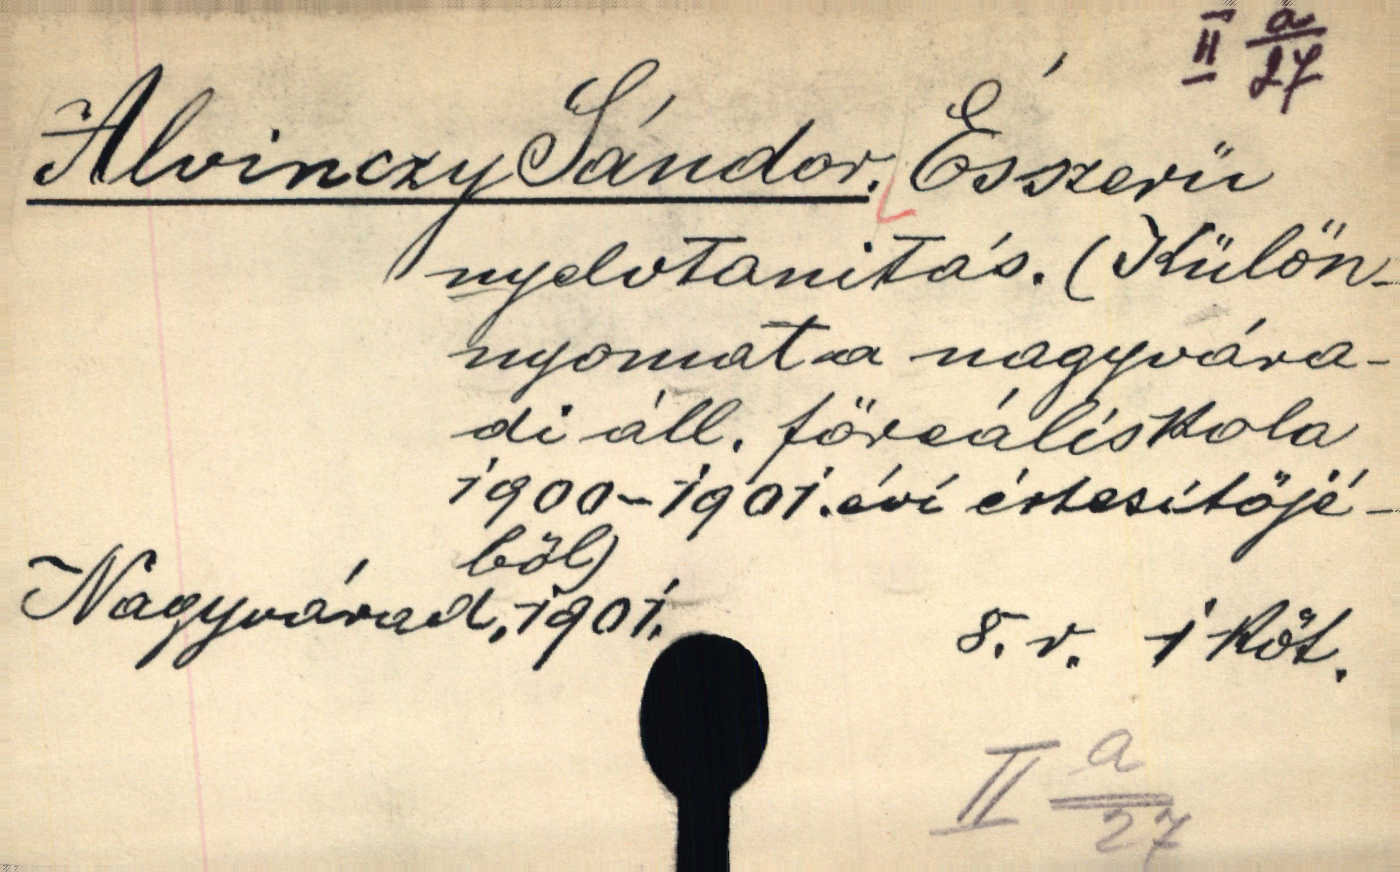 II a/27
Alvinczy Sándor. Ésszerü
nyelvtanitás. (Külön-
nyomat a nagyvára-
di áll. föreáliskola
1900-1901. évi értesítöjé-
böl)
Nagyvárad, 1901.
8. r. 1 köt.
II a/27